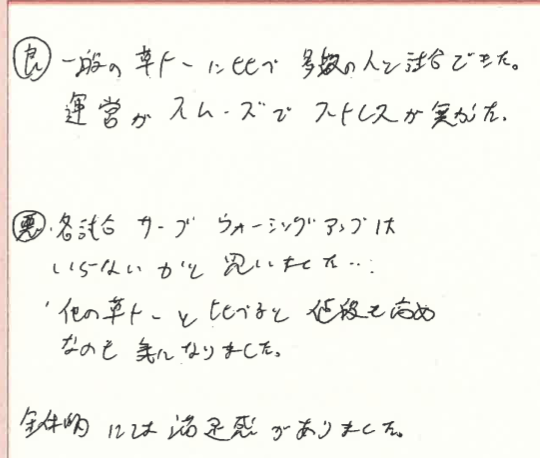 良 一般の草トーに比べ 多数の人と試合できた。
運営がスムーズで ストレスが無かった。
悪・各試合 サーブ ウォーミングアップは
いらないかと思いました…
・他の草トーと比べると 値段も高め
なのも気になりました。
全体的には満足感がありました。